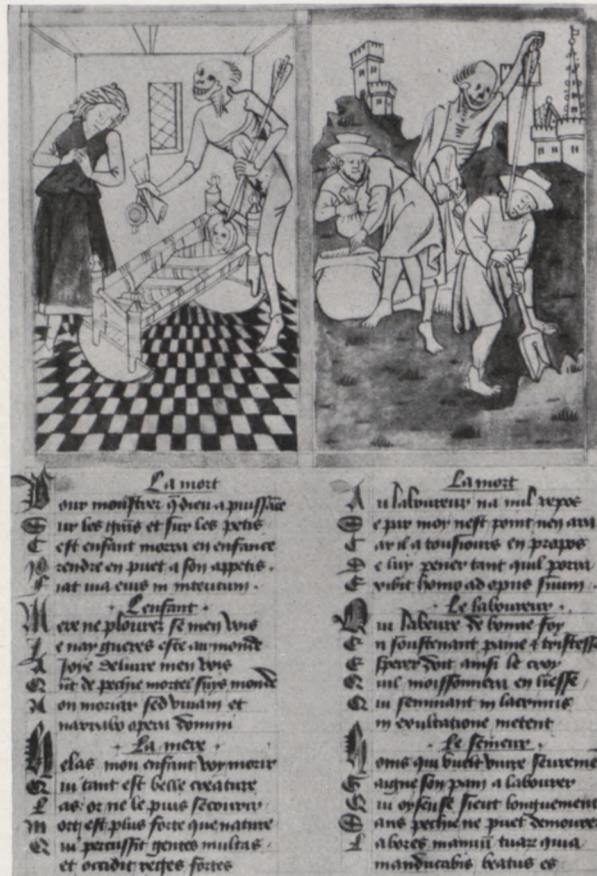 La mort
Pour monstrer q̄ dieu a puissāce
Sur les grās et sur les petis
Cest enfant morra en enfance
Prendre en puet a son appetis
Fiat via eius in interitum
Lenfant
Mere ne plourez se men vois
Je nay gueres este au monde
A Joye deliure men vois
De pechie mortel suys monde
Non moriar sed viuam et
narrabo opera domini
La mere
Helas mon enfant voy morir
Qui tant est belle creature
Las or ne le puis secourir
Mort est plus forte que nature
Qui percussit gentes multas
et occidit reges fortes
La mort
Au laboureur na nul repos
Se par moy nest point nen ara
Car il a tousiours en propos
De luy pener tant quil porra
Exibit homo ad opus suum
Le laboureur
Qui labeure de bonne foy
En soustenant paine & tristesse
Esperer doit ainsi le croy
Quil moissonnera en liesse
Qui seminant in lacrimis
in exultatione metent
Le semeur
Homs qui veult viure seuremēt
Gaigne son pain a labourer
Qui oyseuse sieut longuement
Sans pechie ne puet demourer
Labores manuū tuar quia
manducabis beatus es